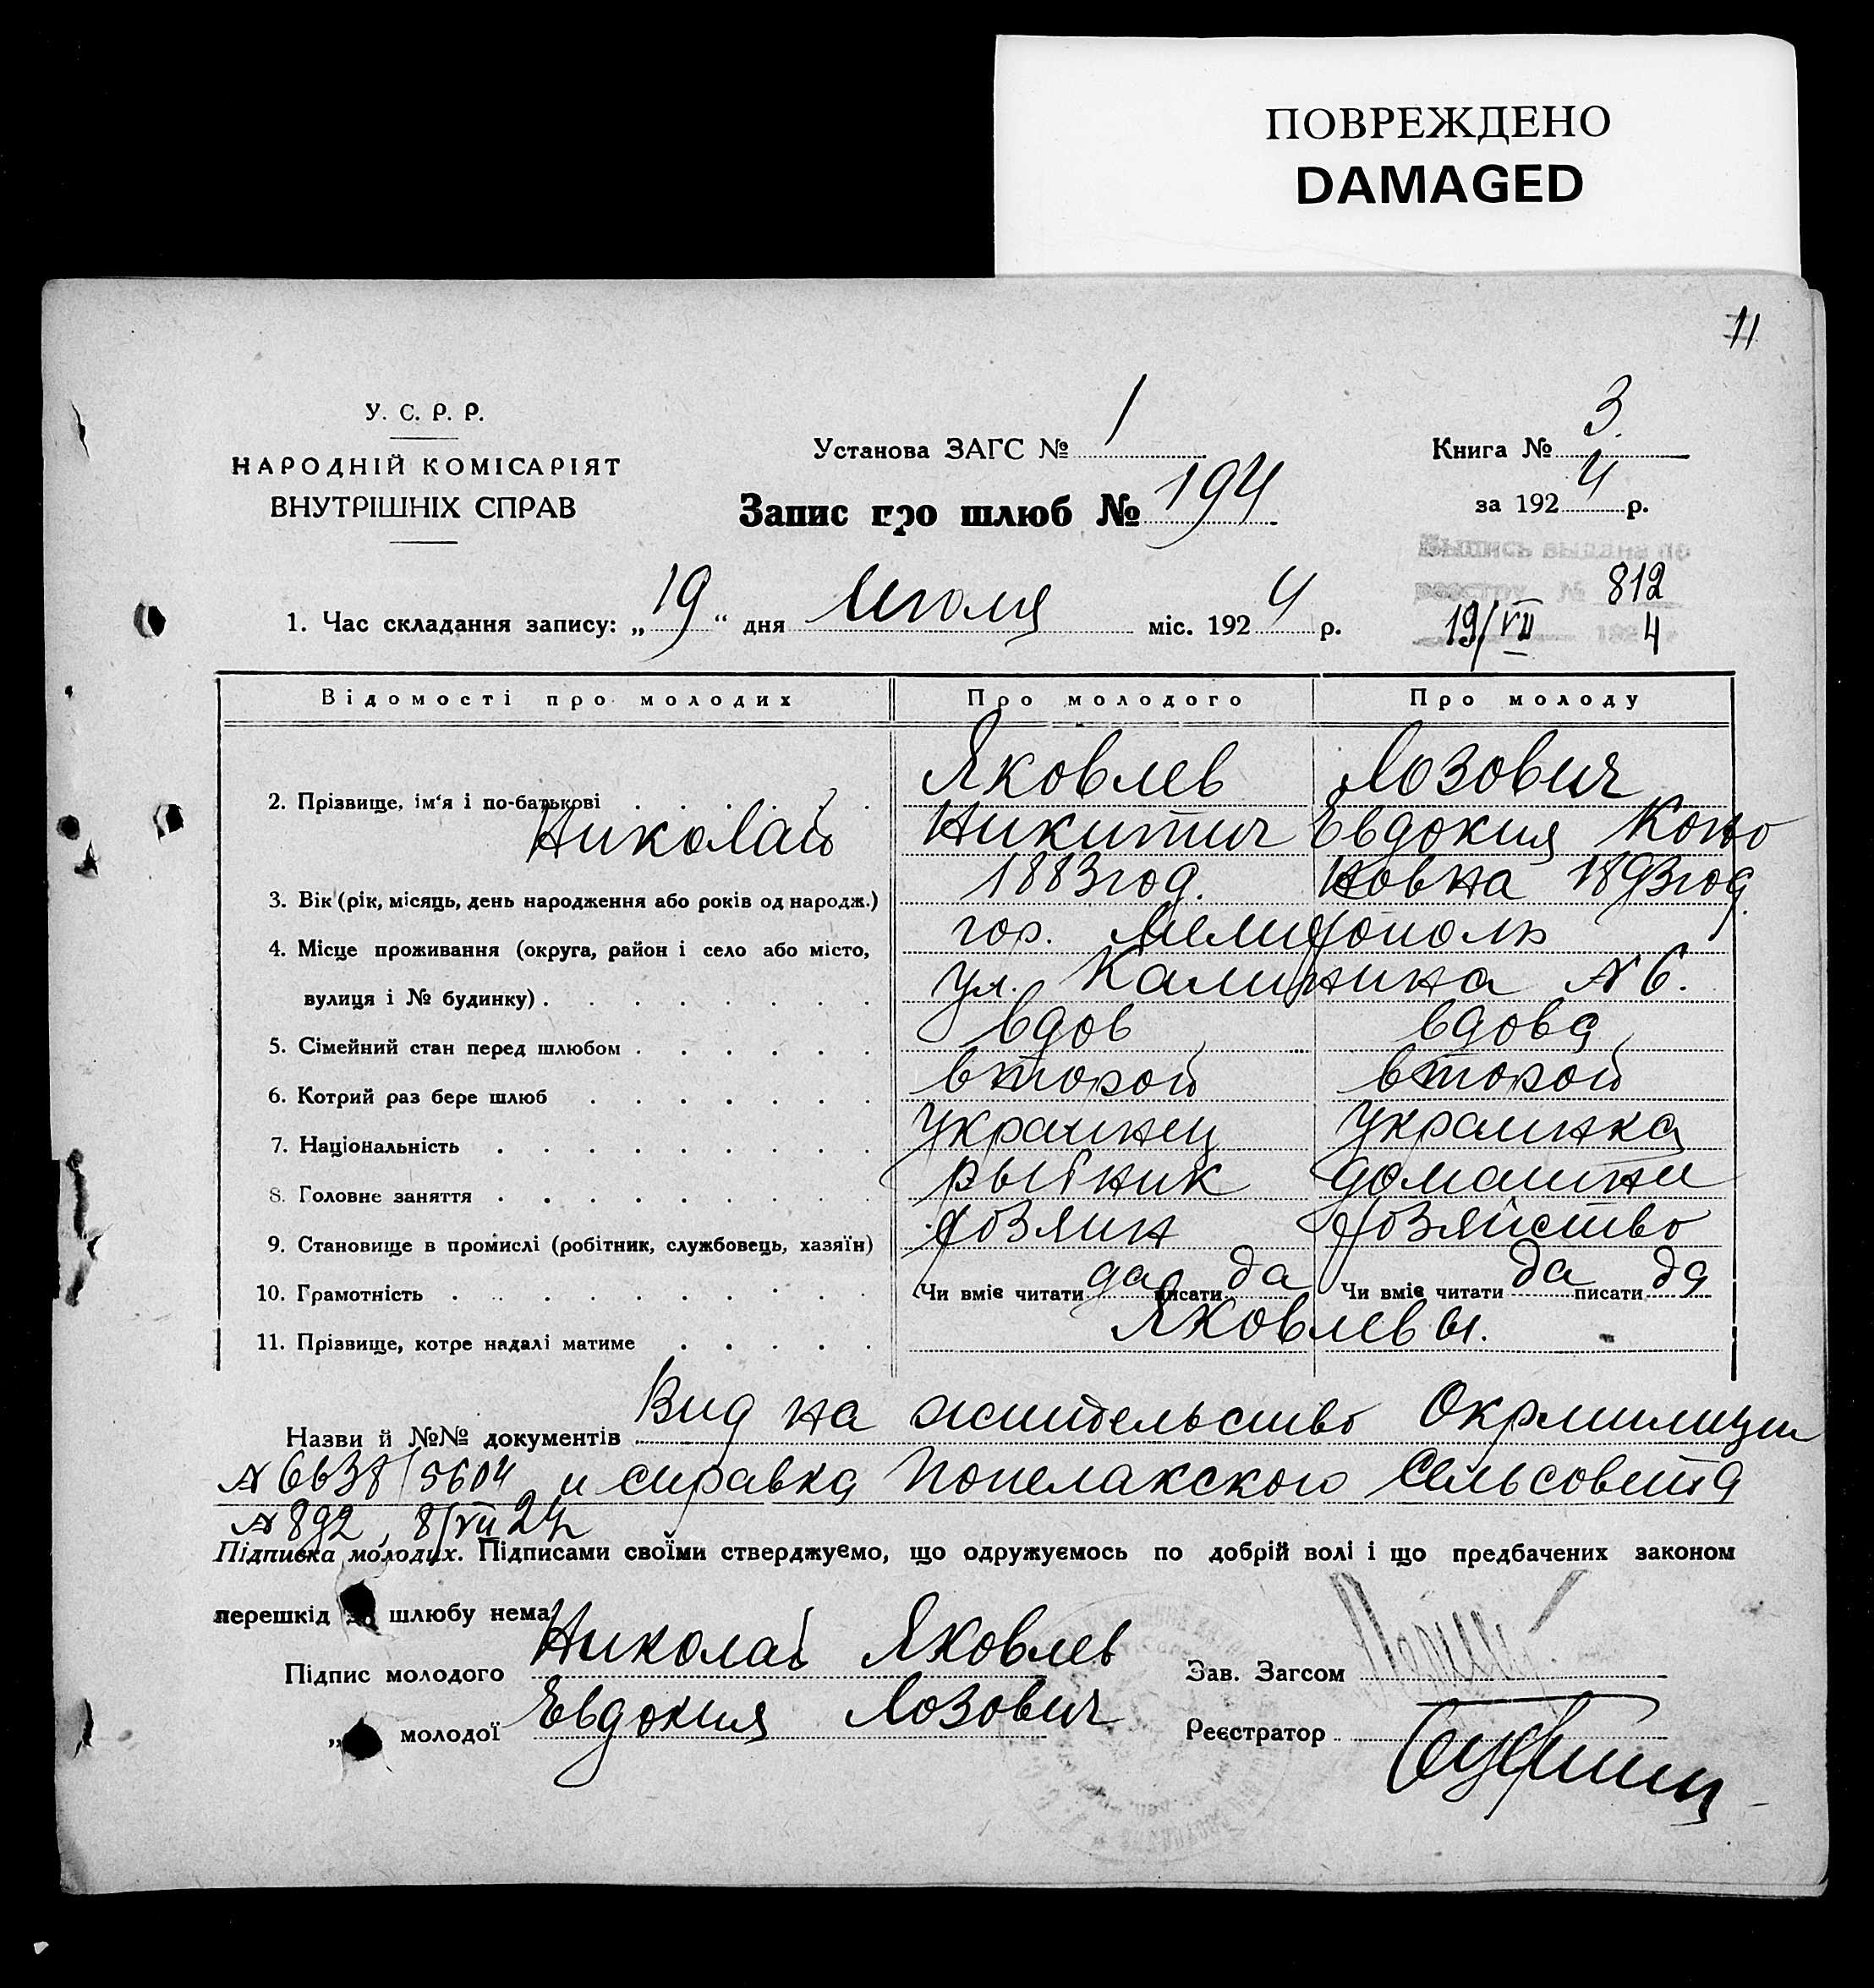 ПОВРЕЖДЕНО
DAMAGED
11
У. С. Р. Р.
НАРОДНІЙ КОМІСАРІЯТ
ВНУТРІШНІХ СПРАВ
Установа ЗАГС № 1
Запис про шлюб № 194
Книга № 3.
за 1924 р.
Выпись выдана по
реестру № 812
19/VII 1924
1. Час складання запису: „19“ дня Июля міс. 1924 р.
Відомості про молодих Про молодого Про молоду
Яковлев Лозович
2. Прізвище, ім'я і по-батькові
Николай Никитич Евдокия Коно
1883 год. новна 1893 год.
3. Вік (рік, місяць, день народження або років од народж.)
гор. Мелитополь
4. Місце проживання (округа, район і село або місто,
ул. Калинина № 6.
вулиця і № будинку)
5. Сімейний стан перед шлюбом вдов вдова
6. Котрий раз бере шлюб второй второй
7. Національність украинец украинка
8. Головне заняття рыбник домашнее
9. Становище в промислі (робітник, службовець, хазяїн) хозяин хозяйство
10. Грамотність Чи вміє читати да писати да Чи вміє читати да писати да
11. Прізвище, котре надалі матиме Яковлевы.
Назви й №№ документів Вид на жительство Окрмилиции
№ 6638/5604 и справка Попелакского Сельсовета
№ 892, 8/VII 24г
Підписка молодих. Підписами своїми стверджуємо, що одружуємось по добрій волі і що предбачених законом
перешкід до шлюбу нема
Підпис молодого Николай Яковлев Зав. Загсом
„ молодої Евдокия Лозович Реєстратор